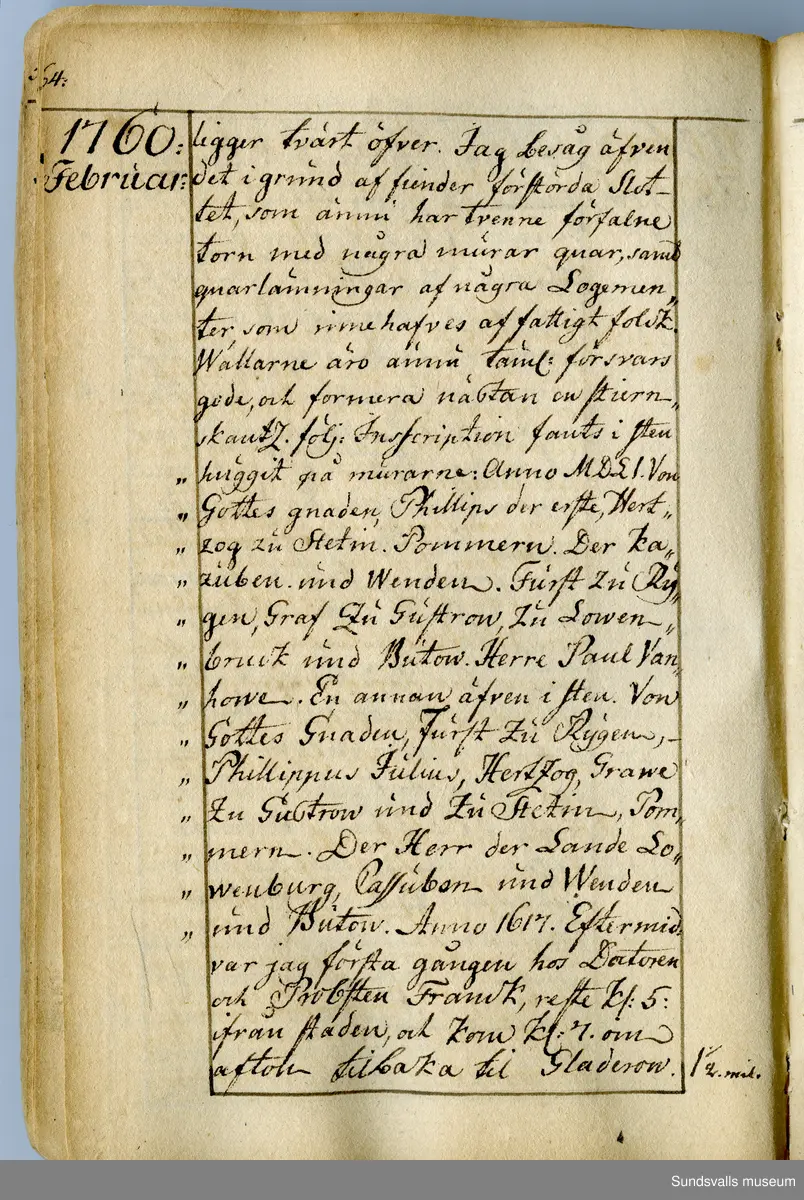 64:
1760:
Februar:
ligger tvärt öfver. Jag besåg äfven
det i grund af fiender förstörda Slot-
tet, som ännu har tvenne förfalne
torn med några murar quar, samt
quarlämningar af några Logemen„
ter som innehafves af fattigt folsk.
Wallarne äro ännu täml: försvars
gode, och formera nästan en stiern„
skantz. följ: Inscription fants i sten
„ huggit på murarne: Anno MDLI. Von
„ Gottes gnaden, Phillips der erste, Hert„
„ zog zu Stetin. Pommern. Der Ka„
„ zuben. und Wenden. Fürst zu Ry„
„ gen, Graf Zu Gustrow, Zu Lowen„
„ bruck und Butow. Herre Paul Van„
„ howe. En annan äfven i sten. Von
„ Gottes Gnaden, Fürst Zu Rygen,-
„ Phillippus Julius, Hertzog, Grawe
„ Zu Gustrow und Zu Stetin, Pom„
„ mern. Der Herr der Lande Lo„
„ wenburg, Cassuben und Wenden
„ und Butow. Anno 1617. Eftermid.
var jag första gången hos Doctoren
och Probsten Franck, reste Kl: 5:
ifrån staden, och kom Kl: 7. om
afton tilbaka til Gladerow.
1 1/2. mil.
Sundsvalls museum